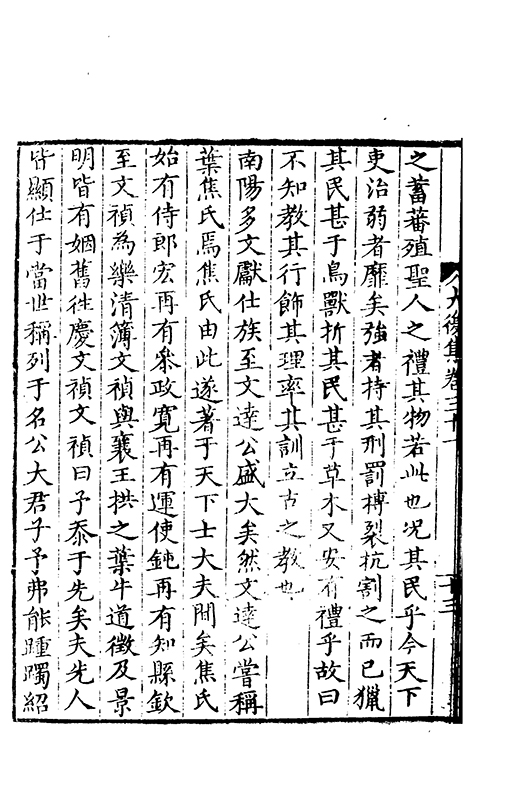 大復集卷三十一
十三
之蓄蕃殖聖人之禮其物若此也况其民乎今天下
吏治弱者靡矣強者持其刑罰搏裂抗割之而已獵
其民甚于鳥獸折其民甚于草木又安有禮乎故曰
不知教其行飾其理率其訓立古之教也
南陽多文獻仕族至文達公盛大矣然文達公嘗稱
葉焦氏焉焦氏由此遂著于天下士大夫間矣焦氏
始有侍郎宏再有叅政寬再有運使鈍再有知縣欽
至文禎為樂清簿文禎與襄王拱之葉牛道徵及景
明皆有姻舊徃慶文禎文禎曰予忝于先矣夫先人
皆顯仕于當世稱列于名公大君子予弗能踵躅紹